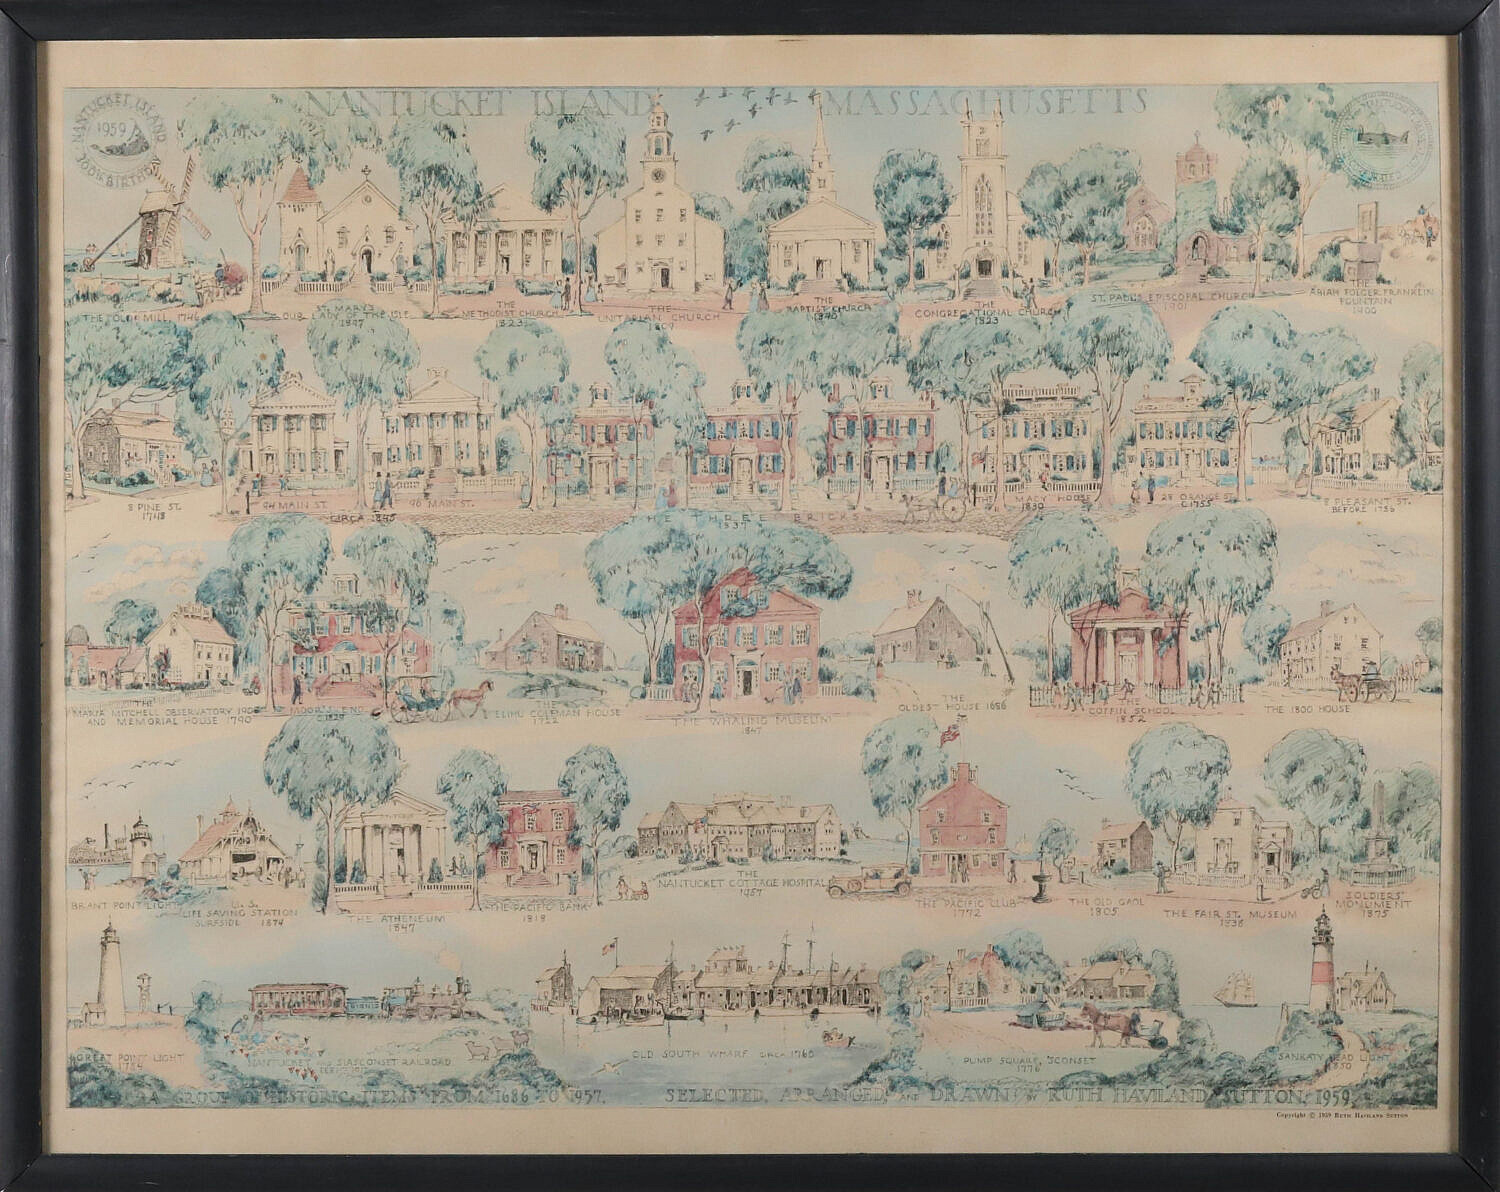 NANTUCKET ISLAND MASSACHUSETTS
NANTUCKET ISLAND
1959
300th BIRTHDAY
THE OLD MILL 1746
ST. MARY'S
OUR LADY OF THE ISLE
1897
THE
METHODIST CHURCH
1823
THE
UNITARIAN CHURCH
1809
THE
BAPTIST CHURCH
1840
THE
CONGREGATIONAL CHURCH
1823
ST. PAUL'S EPISCOPAL CHURCH
1901
THE
ABIAH FOLGER FRANKLIN
FOUNTAIN
1900
8 PINE ST.
1748
94 MAIN ST.
96 MAIN ST.
CIRCA 1845
THE THREE BRICKS
1837
MACY HOUSE
1830
28 ORANGE ST.
C.1755
8 PLEASANT ST.
BEFORE 1756
THE
MARIA MITCHELL OBSERVATORY 1908
AND MEMORIAL HOUSE 1790
MOOR'S END
C.1829
THE
ELIHU COLEMAN HOUSE
1722
THE WHALING MUSEUM
1847
THE
OLDEST HOUSE 1686
THE
COFFIN SCHOOL
1852
THE 1800 HOUSE
BRANT POINT LIGHT
U.S.
LIFE SAVING STATION
SURFSIDE 1874
THE ATHENEUM
1847
THE PACIFIC BANK
1818
THE
NANTUCKET COTTAGE HOSPITAL
1957
THE PACIFIC CLUB
1772
THE OLD GAOL
1805
THE FAIR ST. MUSEUM
1838
SOLDIERS'
MONUMENT
1875
GREAT POINT LIGHT
1784
NANTUCKET SIASCONSET RAILROAD
OLD SOUTH WHARF CIRCA 1760
PUMP SQUARE, 'SCONSET
1776
SANKATY HEAD LIGHT
1850
A GROUP OF HISTORIC ITEMS FROM 1686 TO 1957. SELECTED, ARRANGED, AND DRAWN BY RUTH HAVILAND SUTTON, 1959.
Copyright © 1959 RUTH HAVILAND SUTTON